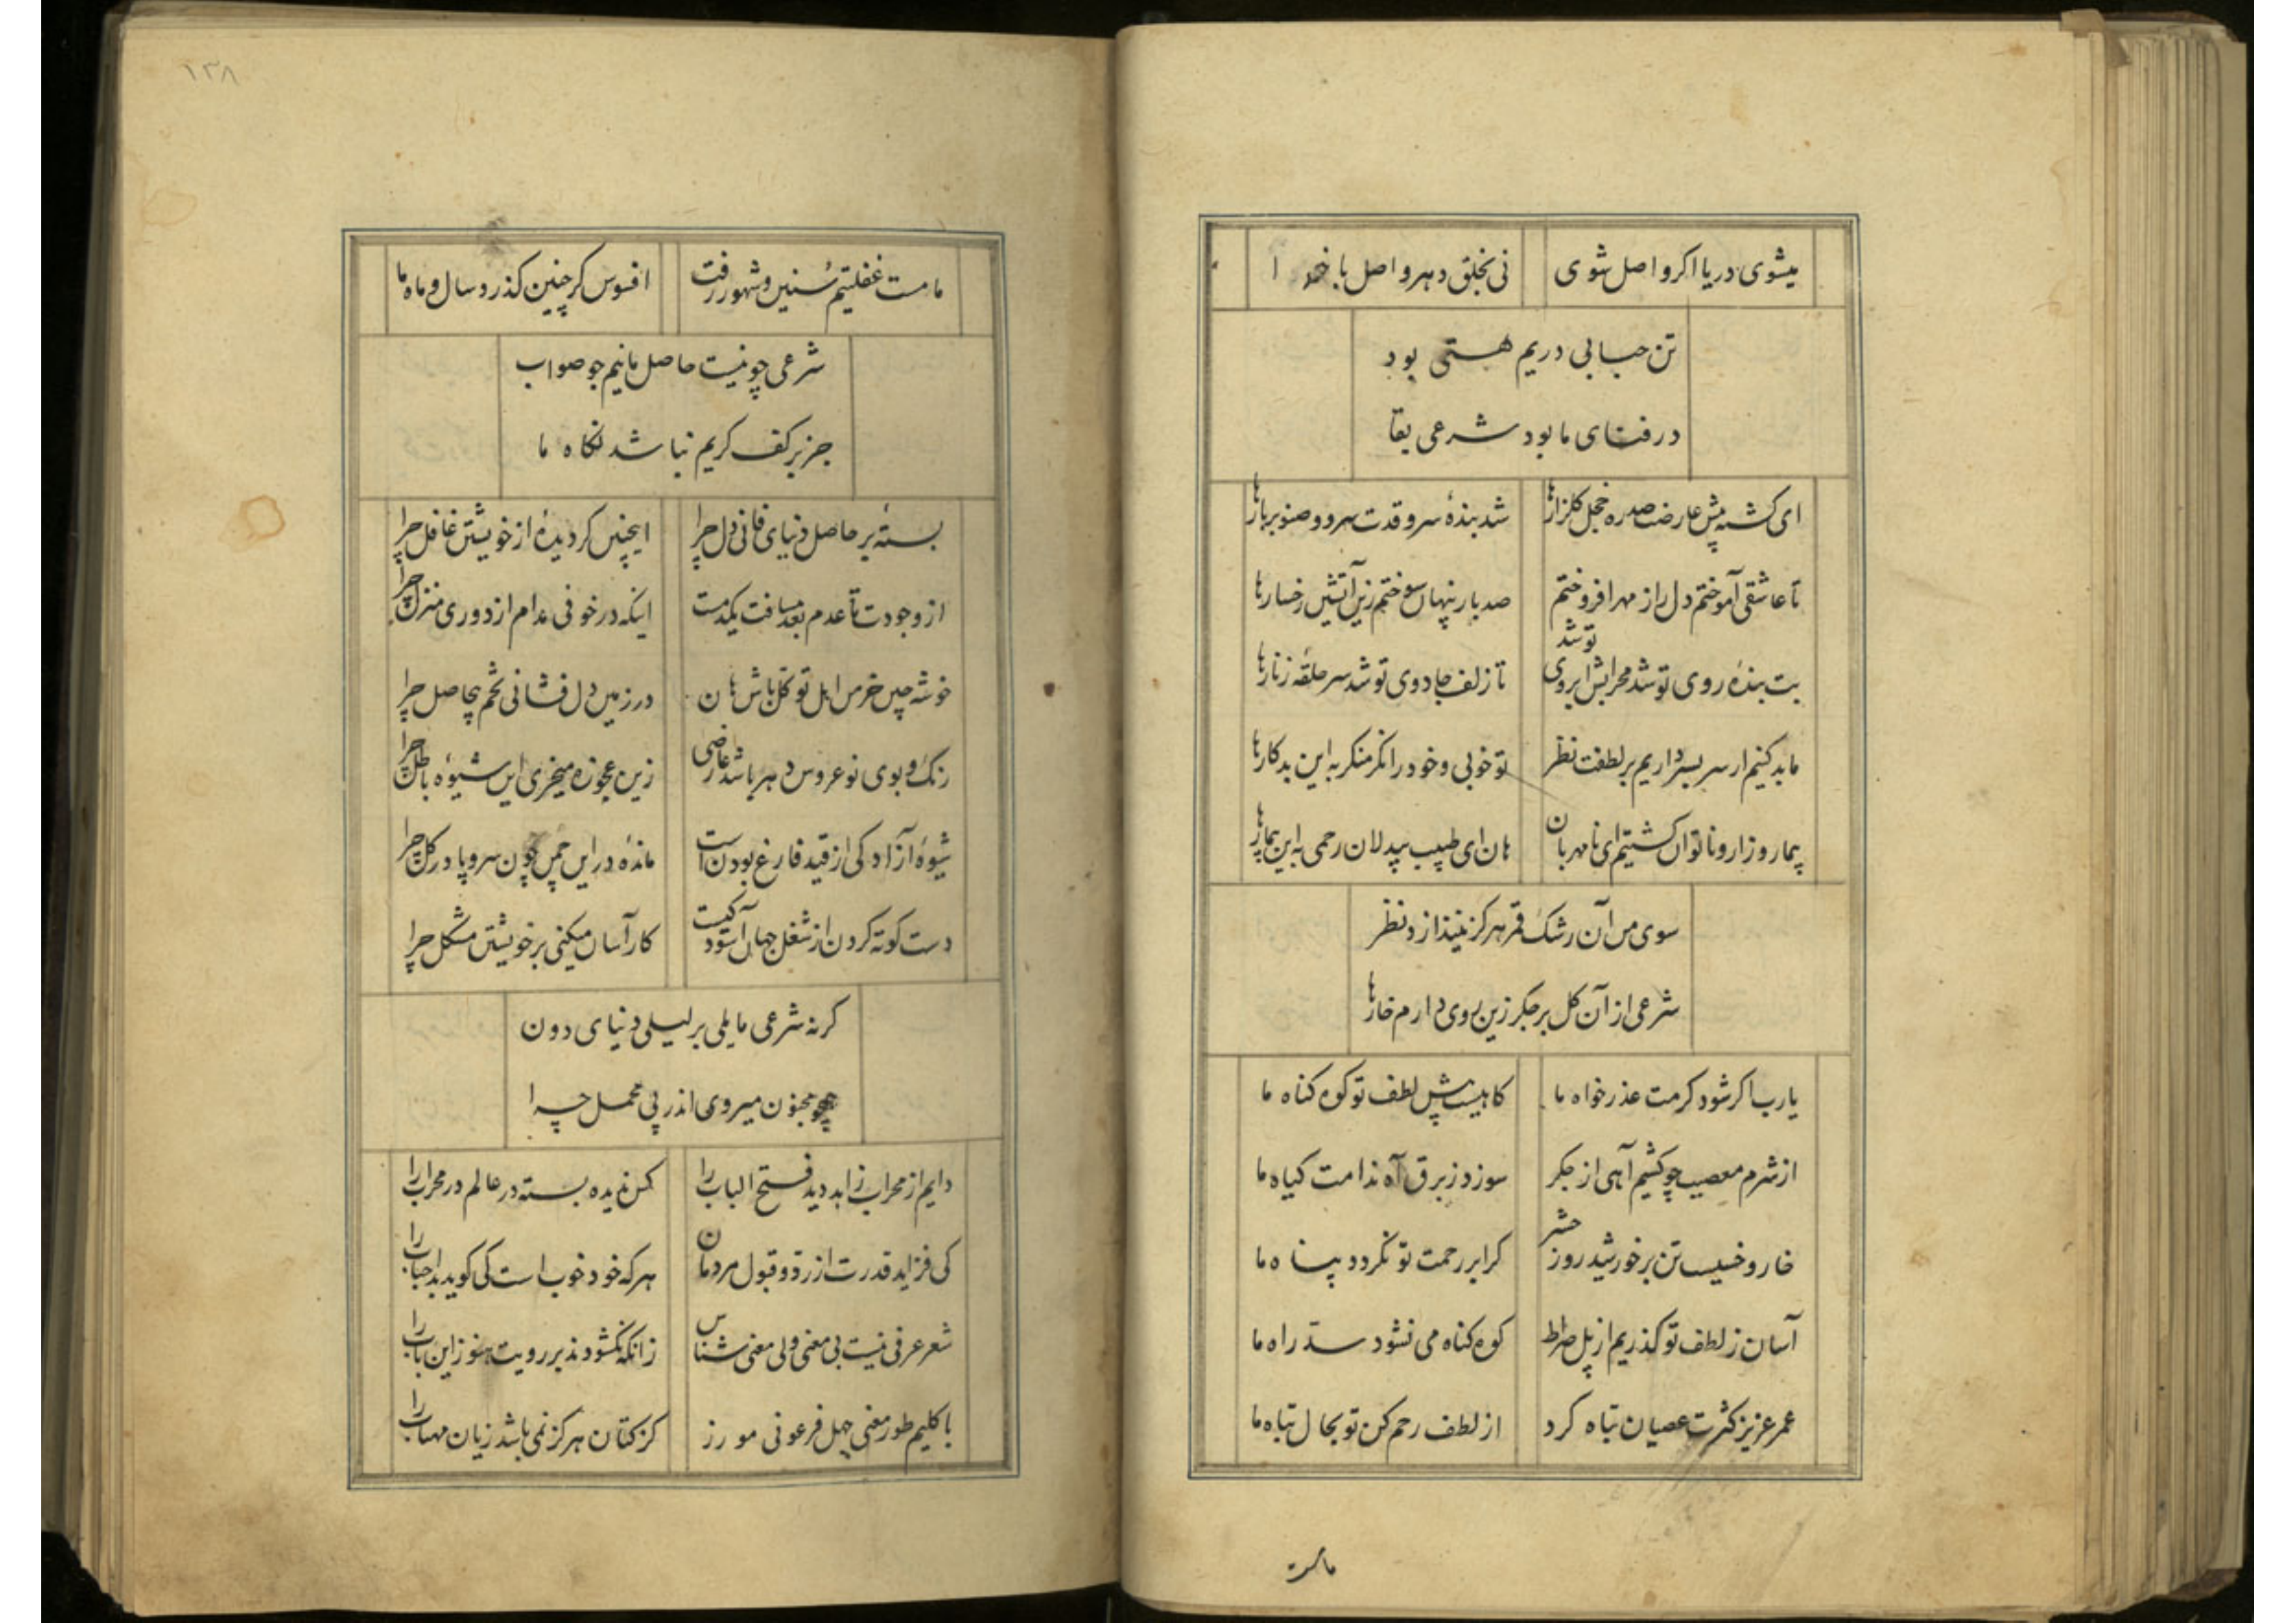 میشوی دریا اکر واصل شوی
نی بخلق دهر واصل با خدا
تن حبابی دریم هستی بود
در فنای ما بود شرعی بقا
ای کشته پیش عارضت صد ره خجل کلزارها
شد بندهٔ سرو قدت سرو و صنوبر بارها
تا عاشقی آموختم دل را ز مهر افروختم
صد بار پنهان سوختم زین آتشین رخسارها
بت بندهٔ روی تو شد محرابش ابروی تو شد
تا زلف جادوی تو شد سر حلقه زنارها
ما بد کنیم ار سر بسر داریم بر لطفت نظر
تو خوبی و خود را نکر منکر به این بد کارها
بیمار و زار و ناتوان کشتیم ای نامهربان
هان ای طبیب بیدلان رحمی به این بیمارها
سوی من آن رشک قمر هرکز نیندازد نظر
شرعی از آن کل بر جکر زین روی دارم خارها
یارب اکر شود کرمت عذر خواه ما
کاهیست پیش لطف تو کوه کناه ما
از شرم معصیت چو کشیم آهی از جکر
سوزد ز برق آه ندامت کیاه ما
خار و خسیست تن بر خورشید روز حشر
کر ابر رحمت تو نکردد پناه ما
آسان ز لطف تو کذریم از پل صراط
کوه کناه می نشود سد راه ما
عمر عزیز کثرت عصیان تباه کرد
از لطف رحم کن تو بحال تباه ما
ماست
۱۳۸
ما مست غفلتیم سنین و شهور رفت
افسوس کر چنین کذرد سال و ماه ما
شرعی چو نیست حاصل مانیم جو صواب
جز بر کف کریم نباشد نکاه ما
بستهٔ بر حاصل دنیای فانی دل چرا
اینچنین کردیدهٔ از خویشتن غافل چرا
از وجودت تا عدم بعد مسافت یکدمست
اینکه در خوفی مدام از دوری منزل چرا
خوشه چین خرمن اهل توکل باش هان
در زمین دل فشانی تخم بیحاصل چرا
رنک و بوی نو عروس دهر باشد عارضی
زین عجوزه میخری این شیوهٔ باطل چرا
شیوهٔ آزادکی از قید فارغ بودن است
ماندهٔ در این چمن چون سرو پا در کل چرا
دست کوته کردن از شغل جهان آسودکیست
کار آسان میکنی بر خویشتن مشکل چرا
کرنه شرعی مایلی بر لیلی دنیای دون
همچو مجنون میروی اندر پی محمل چرا
دایم از محراب زاهد دید فتح الباب را
کس ندیده بسته در عالم در محراب را
کی فزاید قدرت از رد و قبول مردمان
هر که خود خوب است کی کوید بد احباب را
شعر عرفی نیست بی معنی ولی معنی شناس
زانکه نکشودند بر رویت هنوز این باب را
با کلیم طور معنی جهل فرعونی مورز
کز کتان هرکز نمی باشد زیان مهتاب را